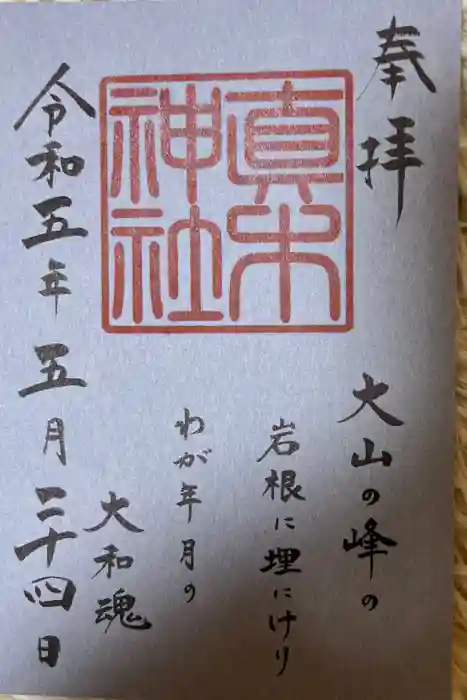 奉拝
大山の峰の
岩根に埋にけり
わが年月の
大和魂
真木
神社
令和五年五月二十四日